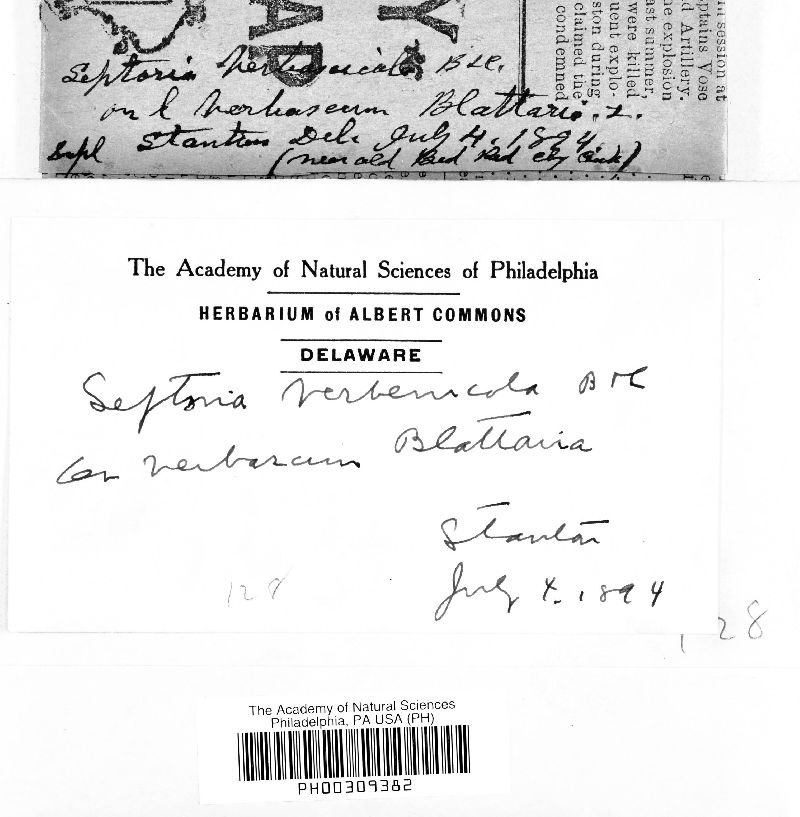 in session at
ptains Vose
d Artillery.
he explosion
ast summer,
were killed
uent explo-
ston during
claimed the
condemned
Septoria B&C.
on l Verbascum Blattaria. L.
Stanton Del. July 4. 1894
(near old Red
The Academy of Natural Sciences of Philadelphia
HERBARIUM of ALBERT COMMONS
DELAWARE
Septoria verbenicola B&C
on verbascum Blattaria
Stanton
July 4. 1894
128
128
The Academy of Natural Sciences
Philadelphia, PA USA (PH)
PH00309382